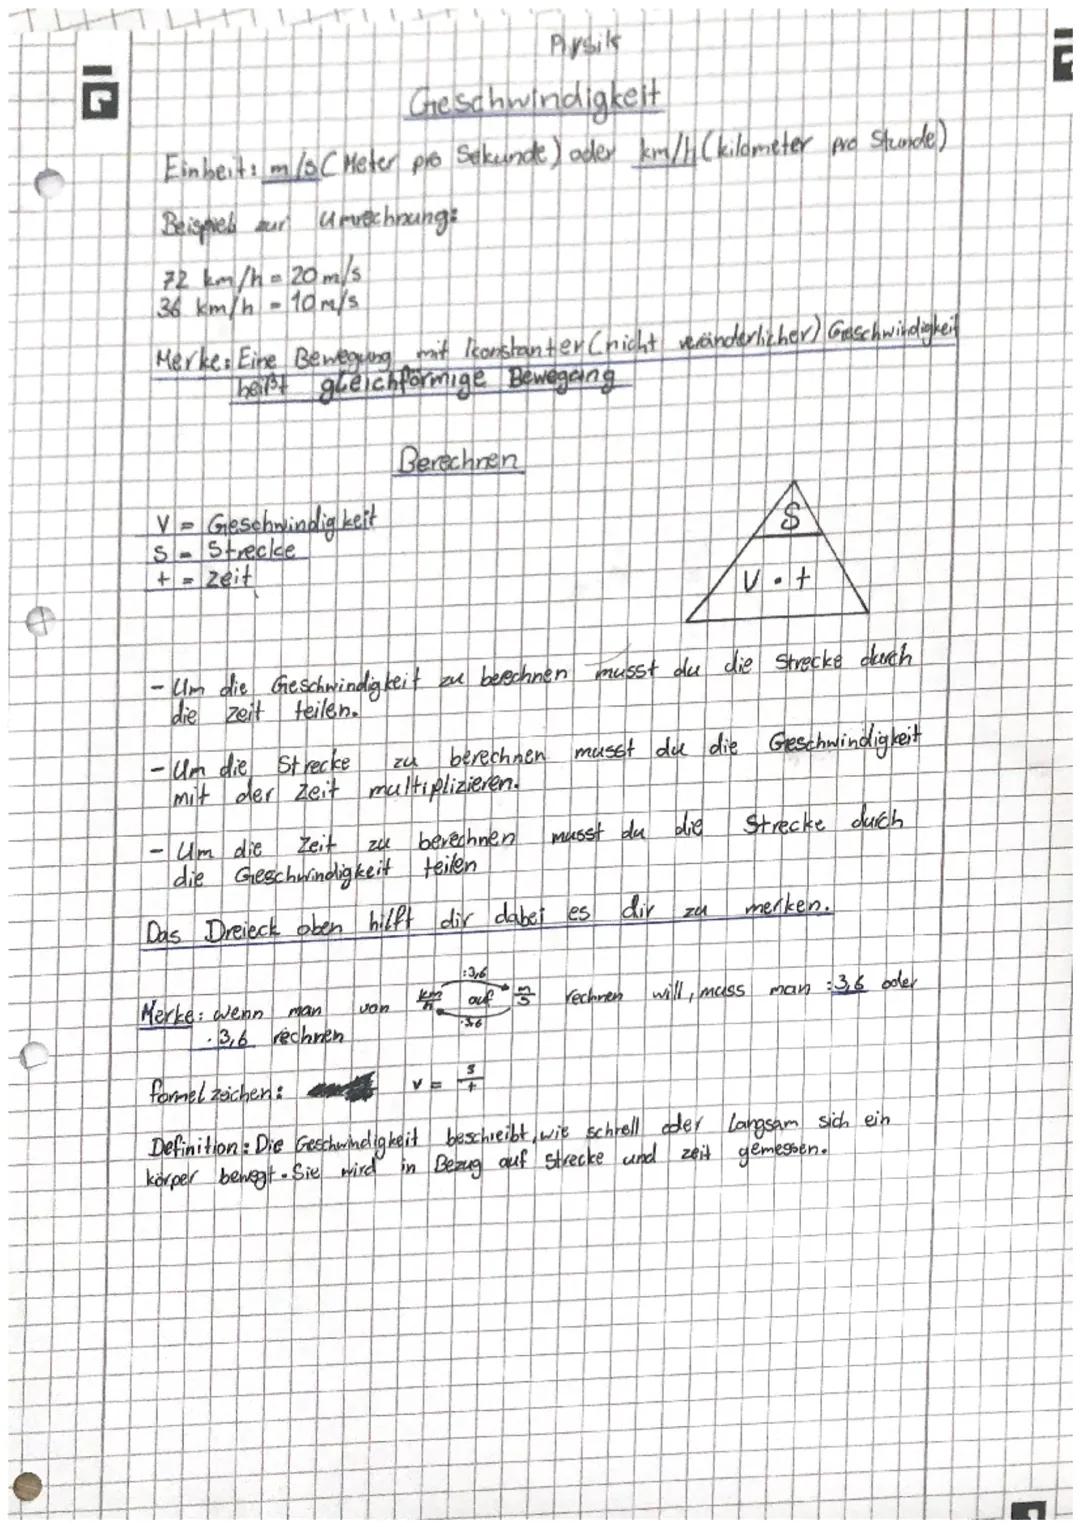 Physik
Geschwindigkeit
Einheit: m/s (Meter pro Sekunde) oder km/h (kilometer pro Stunde)
Beispiel zur Umrechnung:
72 km/h = 20 m/s
36 km/h = 10 m/s
Merke: Eine Bewegung mit konstanter (nicht veränderlicher) Geschwindigkeit
heißt gleichförmige Bewegung
Berechnen
V = Geschwindigkeit
S = Strecke
t = Zeit
S
V · t
- Um die Geschwindigkeit zu beechnen musst du die Strecke durch
die Zeit teilen.
- Um die Strecke zu berechnen musst du die Geschwindigkeit
mit der Zeit multiplizieren.
- Um die Zeit zu berechnen musst du die Strecke durch
die Geschwindigkeit teilen
Das Dreieck oben hilft dir dabei es dir zu merken.
:3,6
Merke: Wenn man von km/h auf m/s rechnen will, muss man :3,6 oder
·3,6
·3,6 rechnen
formelzeichen: v = s/t
Definition: Die Geschwindigkeit beschreibt, wie schnell oder langsam sich ein
körper bewegt. Sie wird in Bezug auf Strecke und zeit gemessen.